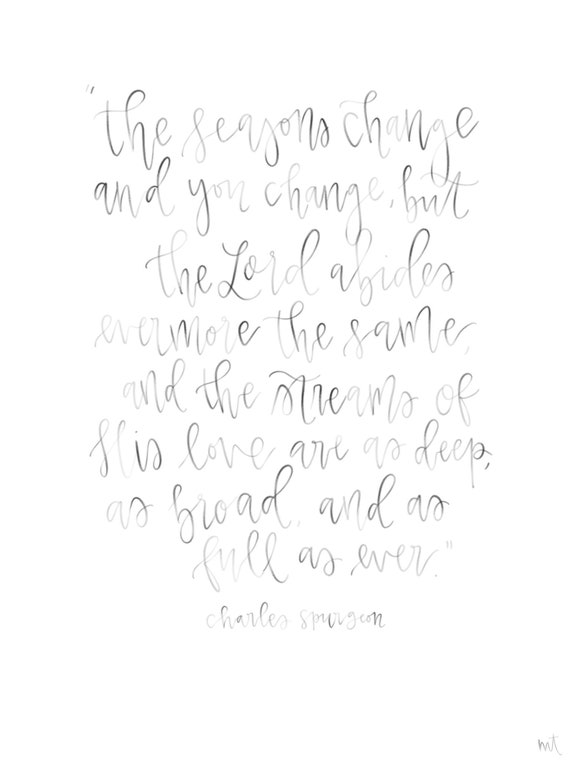 "the seasons change
and you change, but
the Lord abides
evermore the same,
and the streams of
His love are as deep,
as broad, and as
full as ever."
charles spurgeon
mt